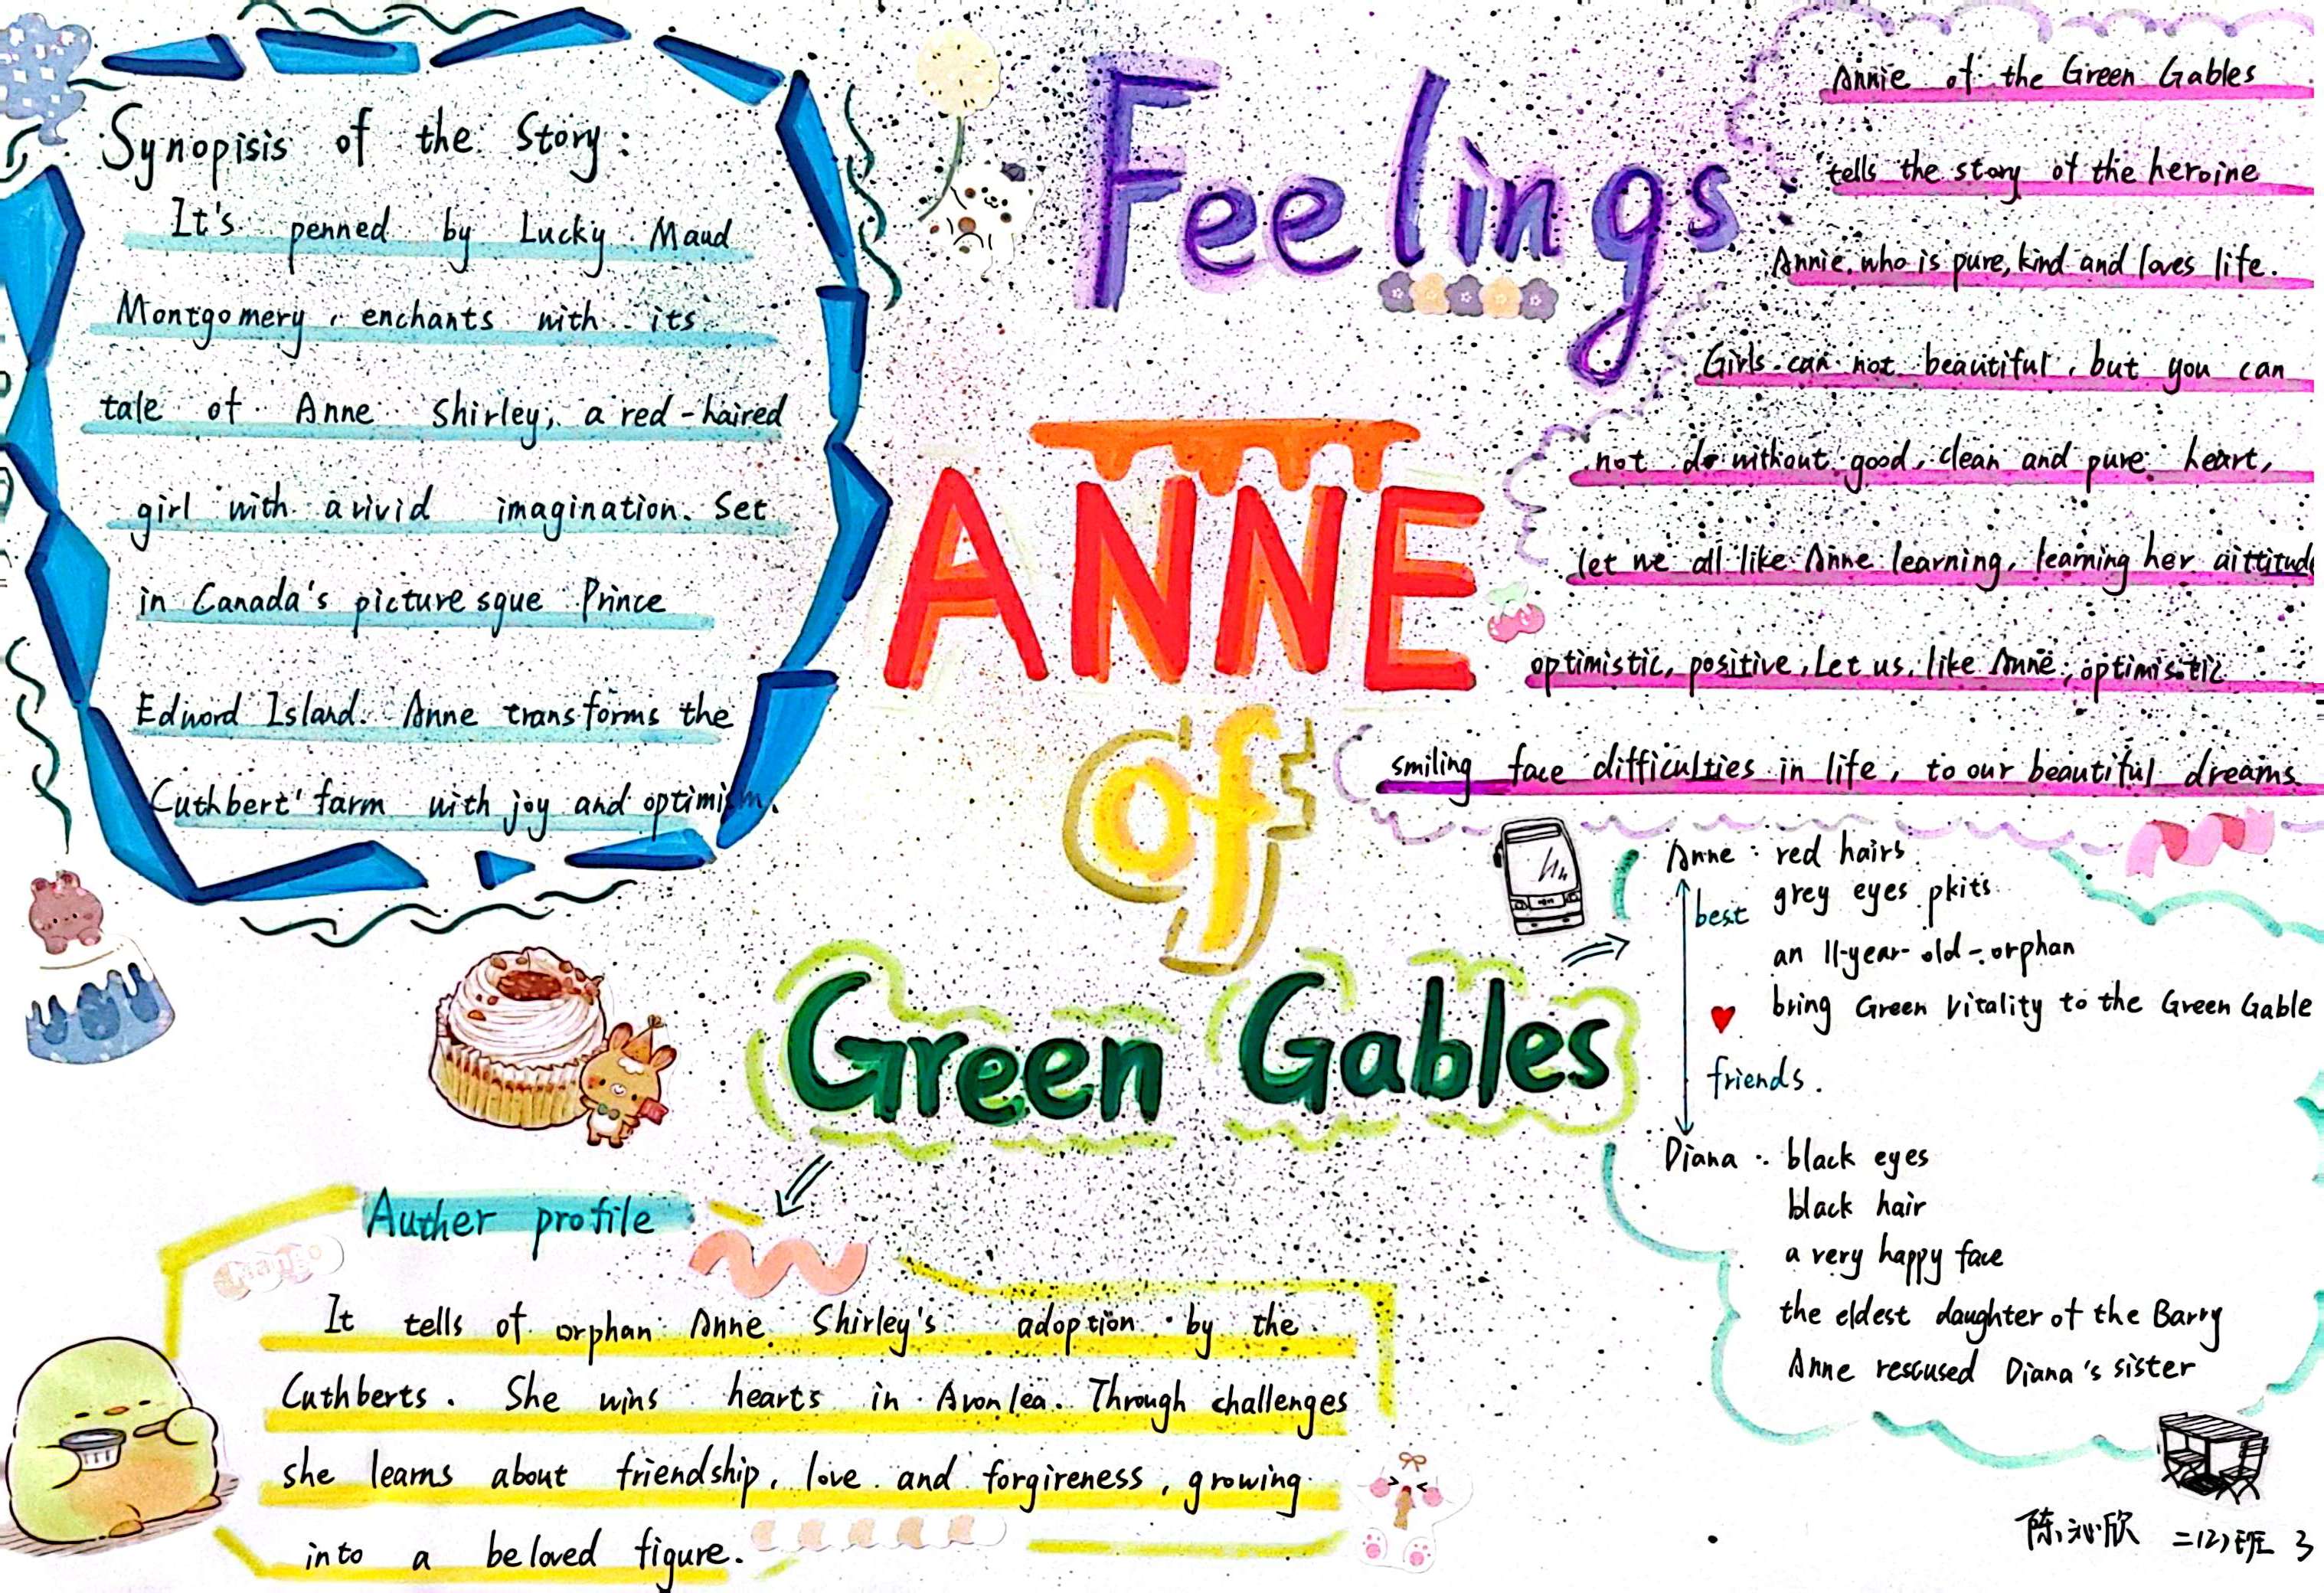 Synopisis of the Story:
It's penned by Lucky Maud
Montgomery, enchants with its
tale of Anne Shirley, a red-haired
girl with a rivid imagination. Set
in Canada's picturesque Prince
Edword Island. Anne transforms the
Cuthbert' farm with joy and optimism.
Feelings
Annie of the Green Gables
tells the story of the heroine
Annie, who is pure, kind and loves life.
Girls can not beautiful, but you can
not do without good, clean and pure heart,
let we all like Anne learning, learning her aittitude
optimistic, positive, Let us, like Anne, optimisitic
smiling face difficulties in life, to our beautiful dreams
ANNE
of
Green Gables
Anne: red hairs
grey eyes pkits
best
an 11-year-old-orphan
bring Green Vitality to the Green Gable
friends.
Diana: black eyes
black hair
a very happy face
the eldest daughter of the Barry
Anne rescused Diana's sister
Auther profile
mango
It tells of orphan Anne Shirley's adoption by the
Cuthberts. She wins hearts in Avonlea. Through challenges
she learns about friendship, love and forgireness, growing
into a beloved figure.
陈沁欣 二(2)班 3